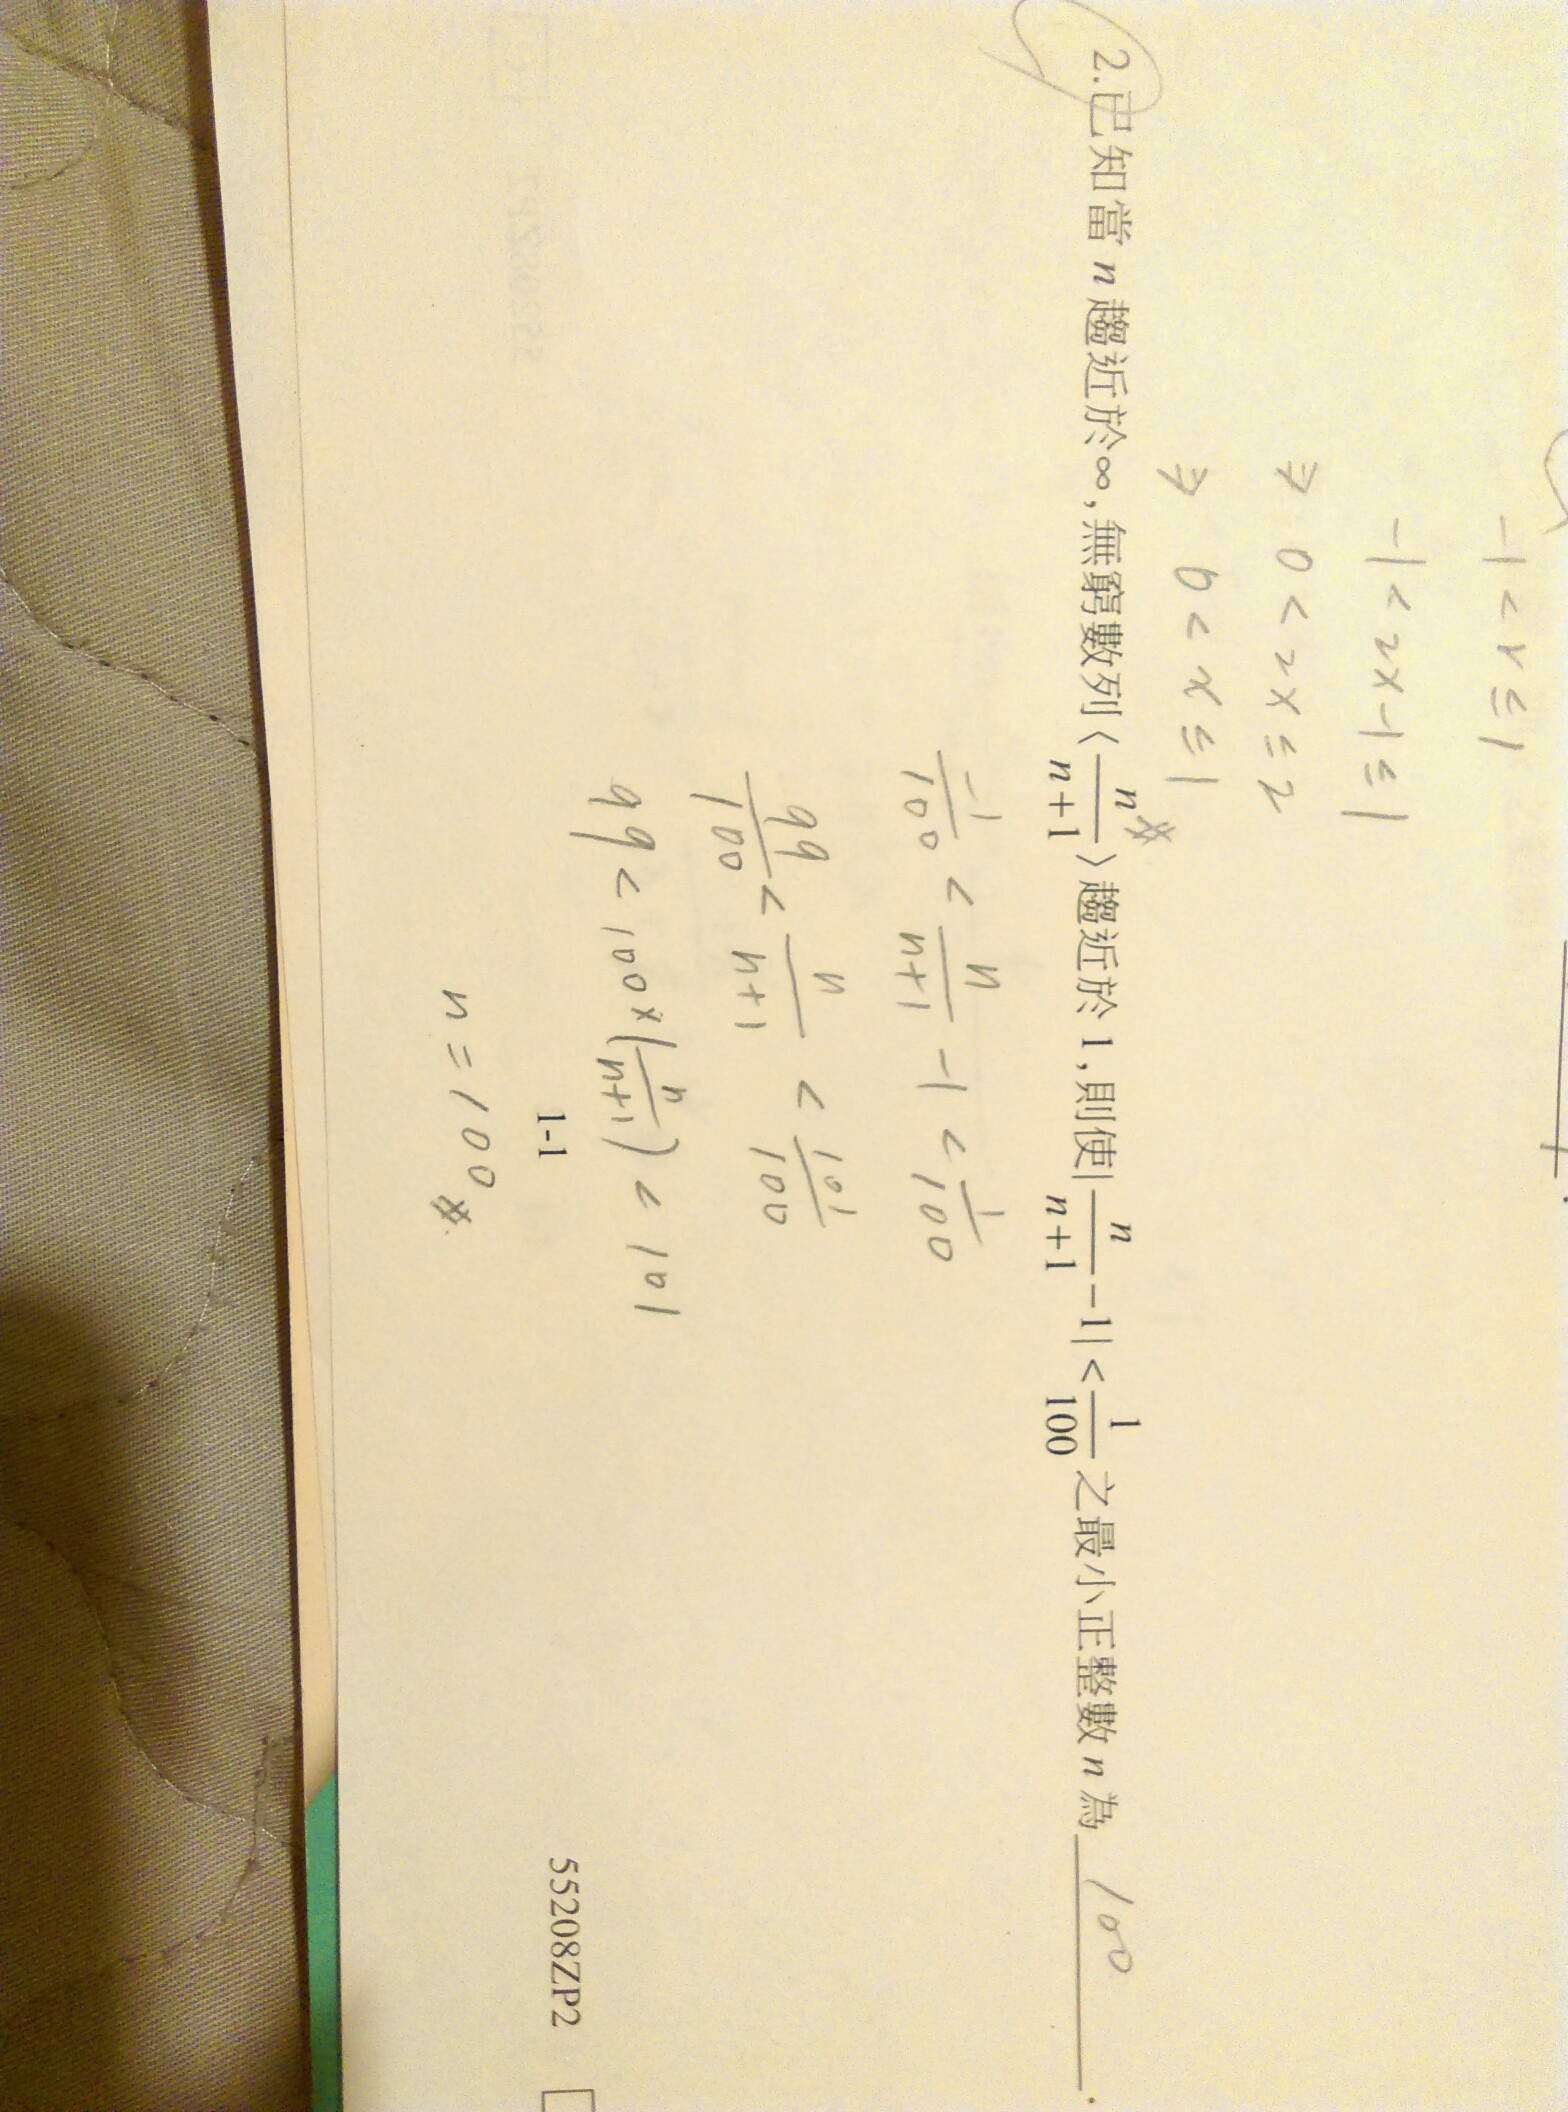 -1 < r ≤ 1
-1 < 2x-1 ≤ 1
⇒ 0 < 2x ≤ 2
⇒ 0 < x ≤ 1 #
2.已知當 n 趨近於∞,無窮數列〈n/(n+1)〉趨近於 1,則使|n/(n+1) −1| < 1/100 之最小正整數 n 為 100 .
-1/100 < n/(n+1) -1 < 1/100
99/100 < n/(n+1) < 101/100
99 < 100×(n/(n+1)) < 101
1-1
55208ZP2
n = 100 #